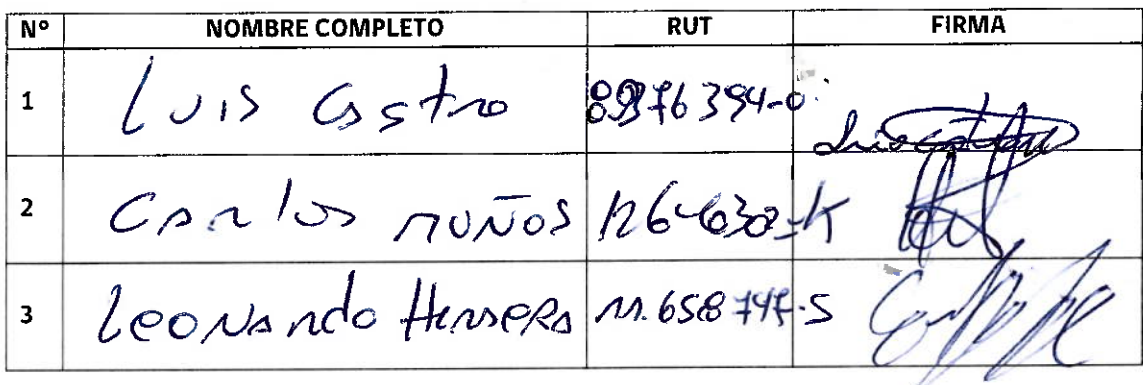 Nº NOMBRE COMPLETO RUT FIRMA
1 Luis Castro
2 Carlos muños
3 Leonardo Herrera 11.658747-5